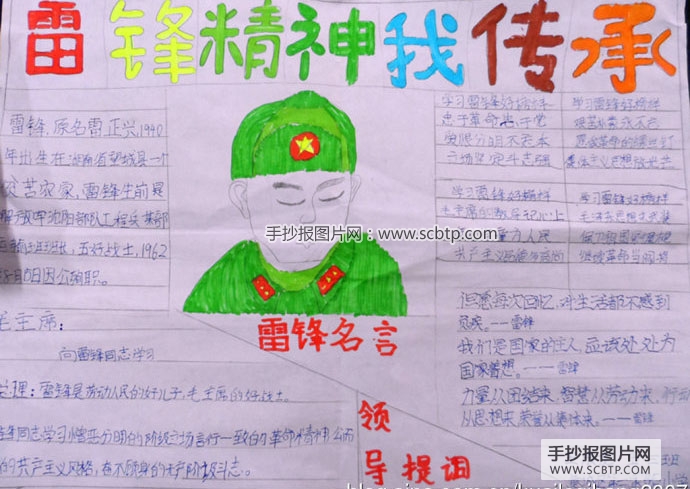 雷锋精神我传承
雷锋,原名雷正兴,1940
年出生在湖南省望城县一个
贫苦农家,雷锋生前是
解放军沈阳部队工程兵某部
运输班班长,五好战士,1962
年8月15日因公殉职。
学习雷锋好榜样
忠于革命忠于党
爱憎分明不忘本
立场坚定斗志强
学习雷锋好榜样
学习雷锋好榜样
毛主席的教导记心上
共产主义
学习雷锋好榜样
毛泽东思想来武装
手抄报图片网:www.scbtp.com
但愿每次回忆,对生活都不感到
负疚。——雷锋
我们是国家的主人,应该处处为
国家着想。——雷锋
力量从团结来,智慧从劳动来,行动
从思想来,荣誉从集体来。——雷锋
雷锋名言
毛主席:
向雷锋同志学习
总理:雷锋是劳动人民的好儿子,毛主席的好战士。
锋同志学习憎爱分明的阶级立场言行一致的革命精神公而
的共产主义风格,奋不顾身的无产阶级斗志。
领
导提词
班
手抄报图片网
WWW.SCBTP.COM